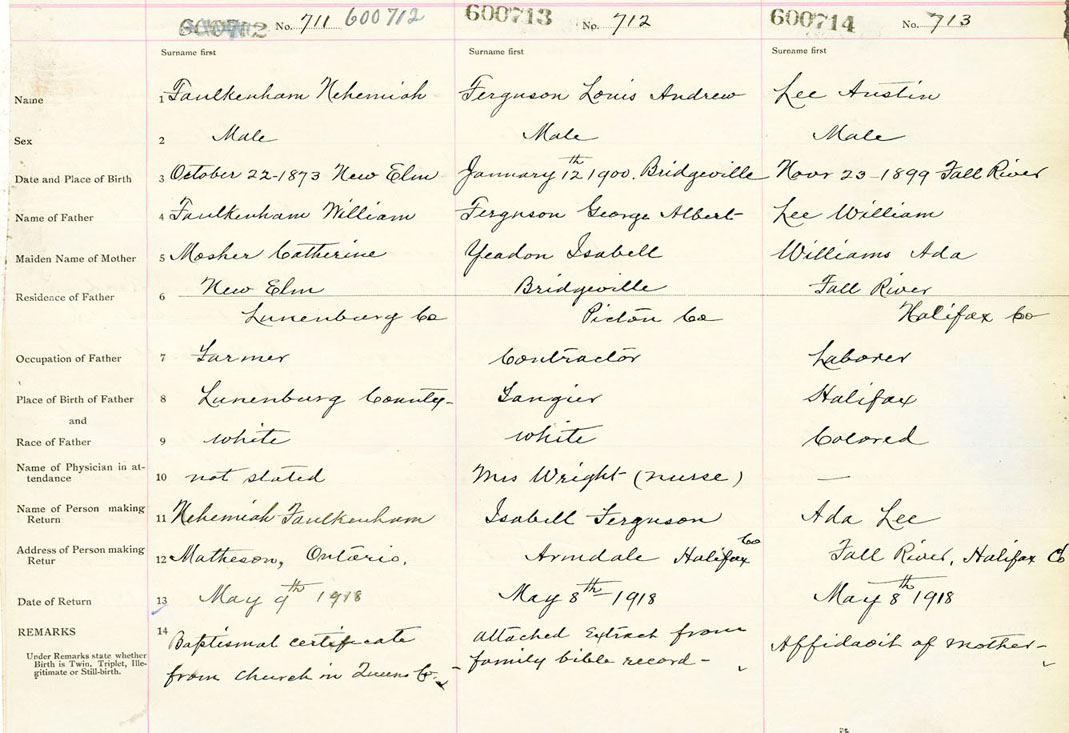 No. 711 600712 600713 No. 712 600714 No. 713
Surname first Surname first Surname first
Name 1 Faulkenham Nehemiah Ferguson Louis Andrew Lee Austin
Sex 2 Male Male Male
Date and Place of Birth 3 October 22-1873 New Elm January 12th 1900. Bridgeville Novr 23-1899 Fall River
Name of Father 4 Faulkenham William Ferguson George Albert Lee William
Maiden Name of Mother 5 Mosher Catherine Yeadon Isabell Williams Ada
Residence of Father 6 New Elm Bridgeville Fall River
Lunenburg Co Pictou Co Halifax Co
Occupation of Father 7 Farmer Contractor Laborer
Place of Birth of Father 8 Lunenburg County- Tangier Halifax
and
Race of Father 9 white white Colored
Name of Physician in at-
tendance 10 not stated Mrs Wright (nurse) —
Name of Person making
Return 11 Nehemiah Faulkenham Isabell Ferguson Ada Lee
Address of Person making
Retur 12 Matheson, Ontario. Armdale Halifax Co Fall River, Halifax Co
Date of Return 13 May 9th 1918 May 8th-1918 May 8th 1918
REMARKS 14 Baptismal certificate attached Extract from Affidavit of Mother-
Under Remarks state whether
Birth is Twin, Triplet, Ille-
gitimate or Still-birth.
from church in Queens Co- family bible record-